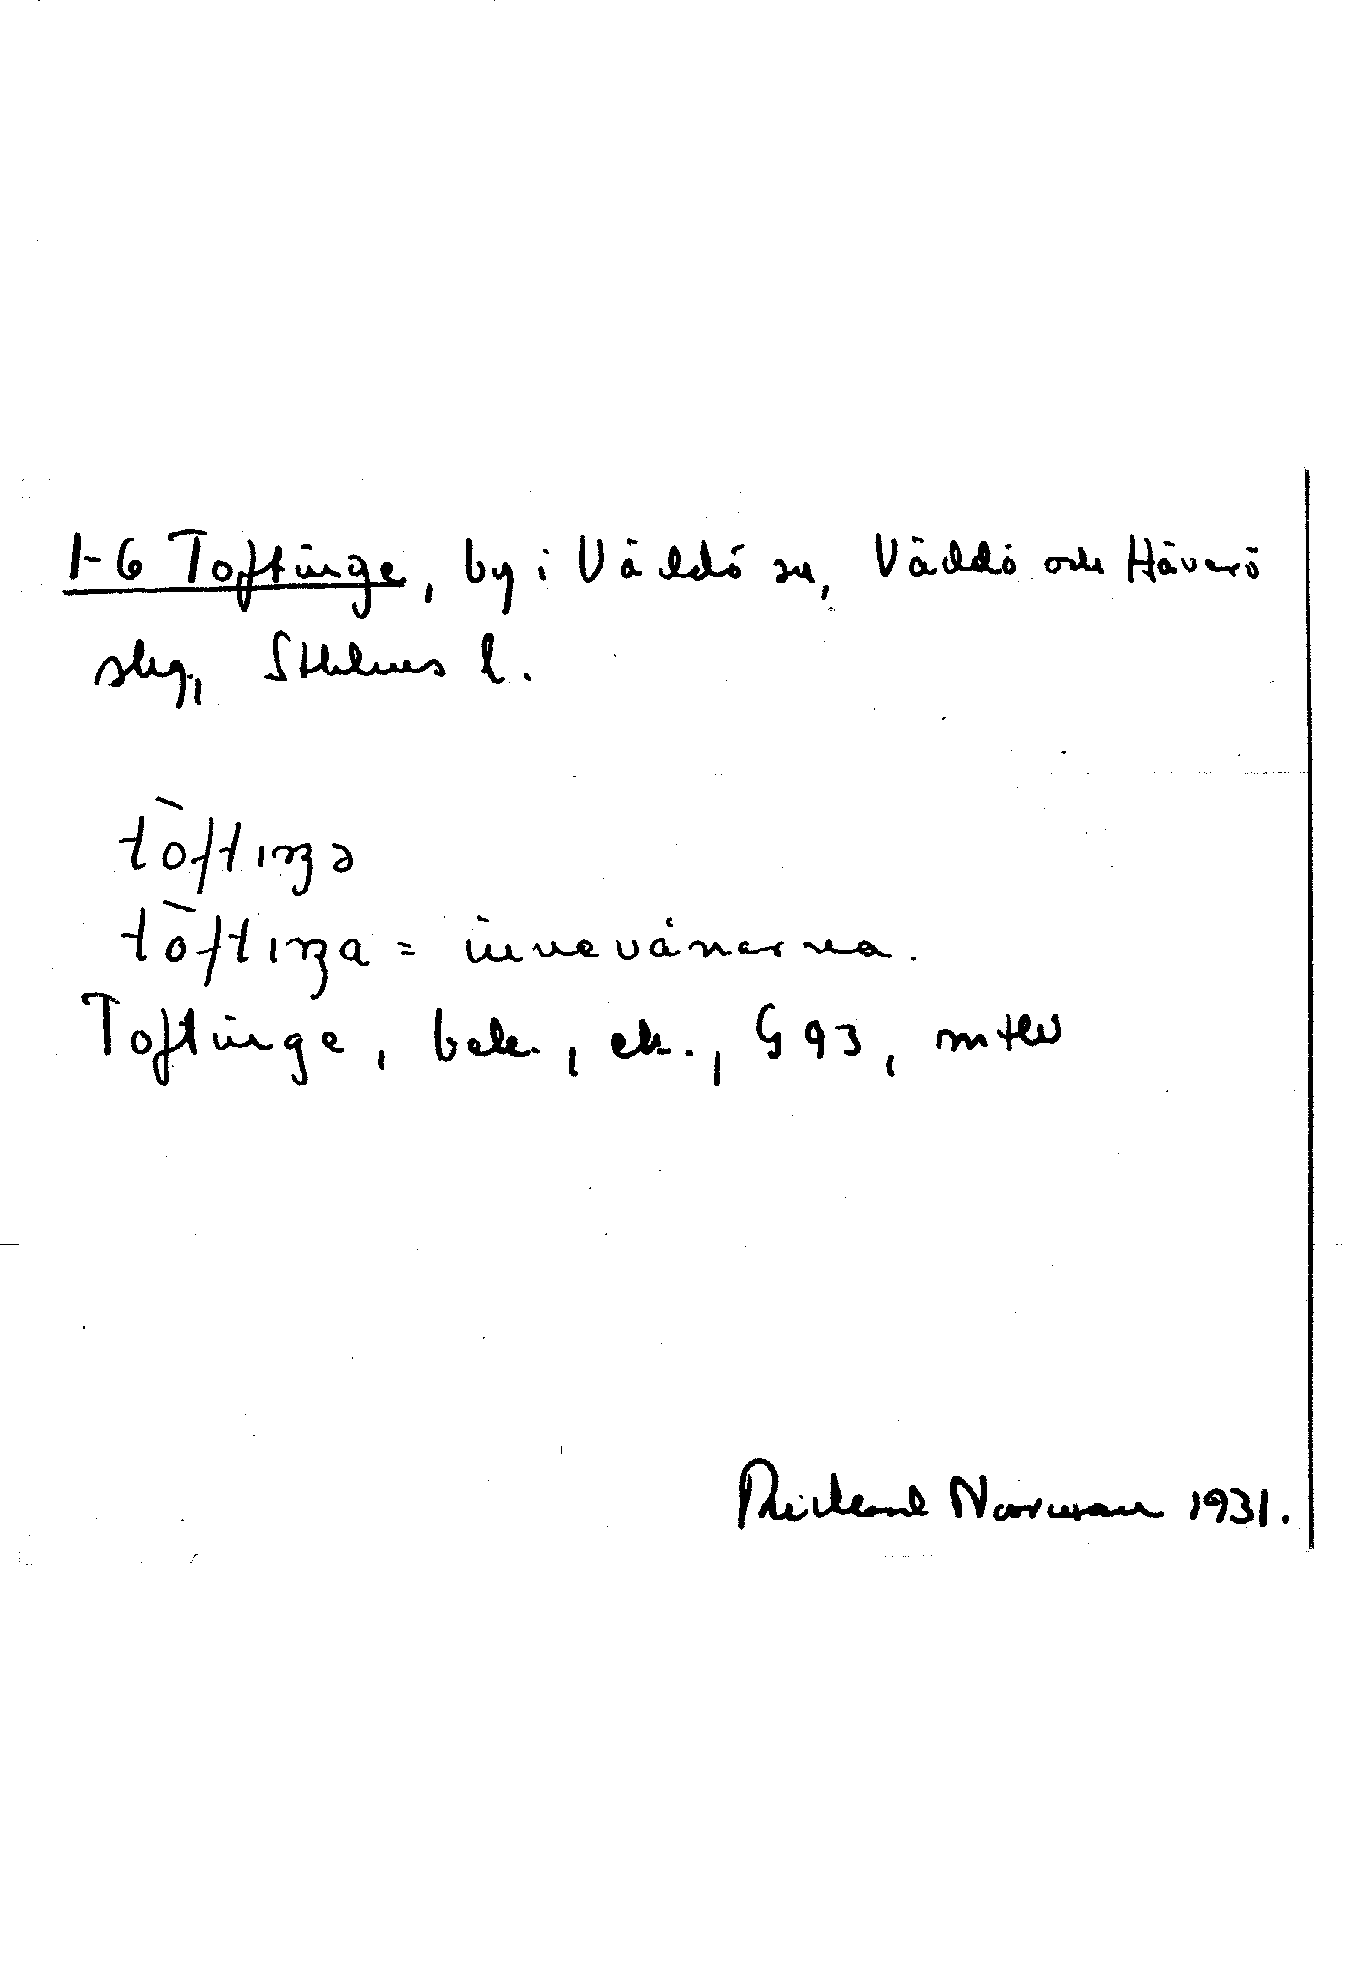 1-6 Toftinge, by i Väddö sn, Väddö och Häverö
skg, Sthlms l.
tòftıŋə
tòftıŋa = innevånarna.
Toftinge, bek., ek., G 93, mtl
Richard Norman 1931.